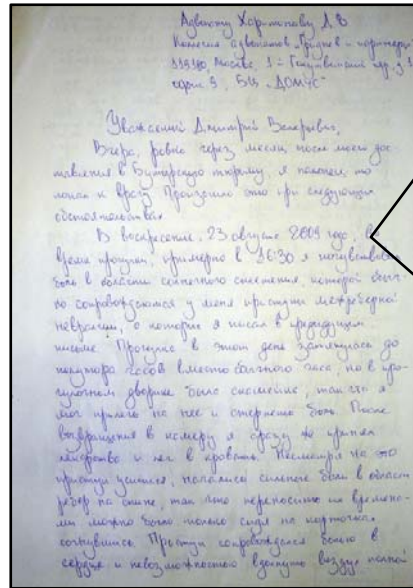 Адвокату Харитонову Д.В
Коллегия адвокатов
119180, Москва, 1-
офис 9, БЦ "ДОМУС"
Уважаемый Дмитрий Валерьевич,
Вчера, ровно через месяц после моего дос-
тавления в Бутырскую тюрьму, я наконец-то
попал к врачу. Произошло это при следующих
обстоятельствах.
В воскресение, 23 августа 2009 года, во
время прогулки, примерно в 16:30 я почувствовал
боль в области солнечного сплетения, которой обыч-
но сопровождаются у меня приступы межреберной
невралгии, о которых я писал в предыдущем
письме. Прогулка в этот день затянулась до
полутора часов вместо обычного часа, но в про-
гулочном дворике была скамейка, так что я
мог прилечь на нее и стерпеть боль. После
возвращения в камеру я сразу же принял
лекарства и лег в кровать. Несмотря на это
приступ усилился, начались сильные боли в области
ребер на спине, так что переносить их времена-
ми можно было только сидя на корточках
согнувшись. Приступ сопровождался болью в
сердце и невозможностью вдохнуть воздух полной